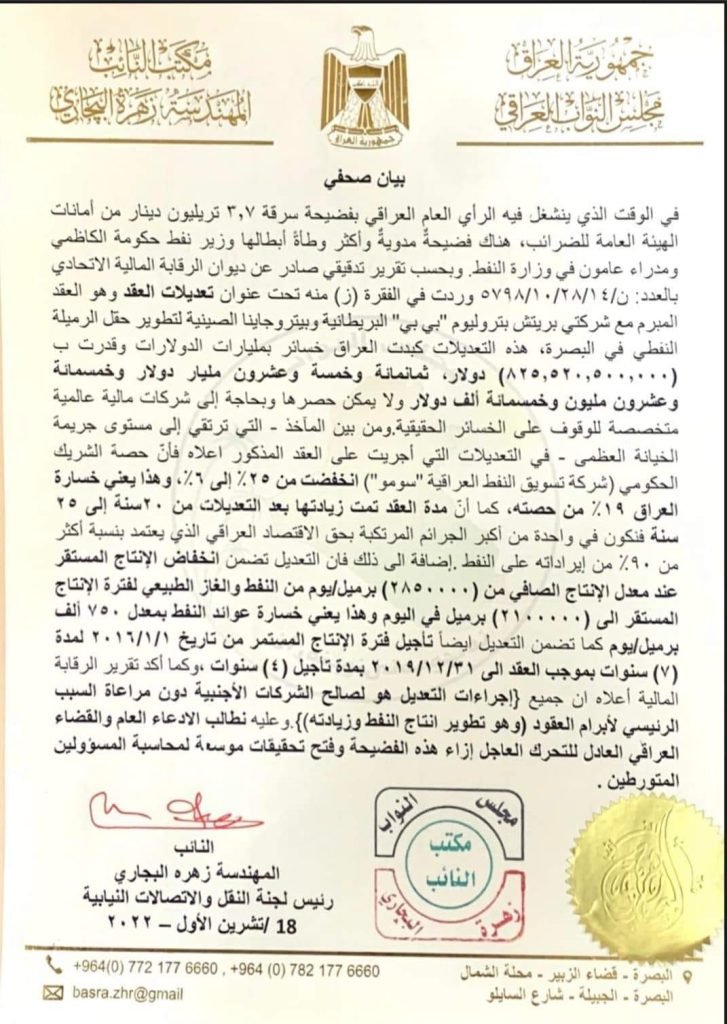 جمهورية العراق
مجلس النواب العراقي
جمهورية العراق
مكتب النائب
المهندسة زهرة البجاري
بيان صحفي
في الوقت الذي ينشغل فيه الرأي العام العراقي بفضيحة سرقة ٣,٧ تريليون دينار من أمانات
الهيئة العامة للضرائب، هناك فضيحةٌ مدويةٌ وأكثر وطأة أبطالها وزير نفط حكومة الكاظمي
ومدراء عامون في وزارة النفط. وبحسب تقرير تدقيقي صادر عن ديوان الرقابة المالية الاتحادي
بالعدد: ن/٥٧٩٨/١٠/٢٨/١٤ وردت في الفقرة (ز) منه تحت عنوان تعديلات العقد وهو العقد
المبرم مع شركتي بريتش بتروليوم "بي بي" البريطانية وبيتروجاينا الصينية لتطوير حقل الرميلة
النفطي في البصرة، هذه التعديلات كبدت العراق خسائر بمليارات الدولارات وقدرت ب
(٨٢٥,٥٢٠,٥٠٠,٠٠٠) دولار، ثمانمائة وخمسة وعشرون مليار دولار وخمسمائة
وعشرون مليون وخمسمائة ألف دولار ولا يمكن حصرها وبحاجة إلى شركات مالية عالمية
متخصصة للوقوف على الخسائر الحقيقية.ومن بين المآخذ - التي ترتقي إلى مستوى جريمة
الخيانة العظمى - في التعديلات التي أجريت على العقد المذكور اعلاه فأنّ حصة الشريك
الحكومي (شركة تسويق النفط العراقية "سومو") انخفضت من ٢٥٪ إلى ٦٪، وهذا يعني خسارة
العراق ١٩٪ من حصته، كما أنّ مدة العقد تمت زيادتها بعد التعديلات من ٢٠سنة إلى ٢٥
سنة فنكون في واحدة من أكبر الجرائم المرتكبة بحق الاقتصاد العراقي الذي يعتمد بنسبة أكثر
من ٩٠٪ من إيراداته على النفط .إضافة الى ذلك فان التعديل تضمن انخفاض الإنتاج المستقر
عند معدل الإنتاج الصافي من (٢٨٥٠٠٠٠) برميل/يوم من النفط والغاز الطبيعي لفترة الإنتاج
المستقر الى (٢١٠٠٠٠٠) برميل في اليوم وهذا يعني خسارة عوائد النفط بمعدل ٧٥٠ ألف
برميل/يوم كما تضمن التعديل ايضاً تأجيل فترة الإنتاج المستمر من تاريخ ٢٠١٦/١/١ لمدة
(٧) سنوات بموجب العقد الى ٢٠١٩/١٢/٣١ بمدة تأجيل (٤) سنوات ،وكما أكد تقرير الرقابة
المالية أعلاه ان جميع {إجراءات التعديل هو لصالح الشركات الأجنبية دون مراعاة السبب
الرئيسي لأبرام العقود (وهو تطوير انتاج النفط وزيادته)}.وعليه نطالب الادعاء العام والقضاء
العراقي العادل للتحرك العاجل إزاء هذه الفضيحة وفتح تحقيقات موسعة لمحاسبة المسؤولين
المتورطين .
مجلس النواب
مكتب
النائب
زهرة البجاري
النائب
المهندسة زهره البجاري
رئيس لجنة النقل والاتصالات النيابية
18 /تشرين الأول – ٢٠٢٢
البصرة - قضاء الزبير - محلة الشمال
البصرة - الجبيلة - شارع السايلو
+964(0) 772 177 6660 , +964 (0) 782 177 6660
basra.zhr@gmail